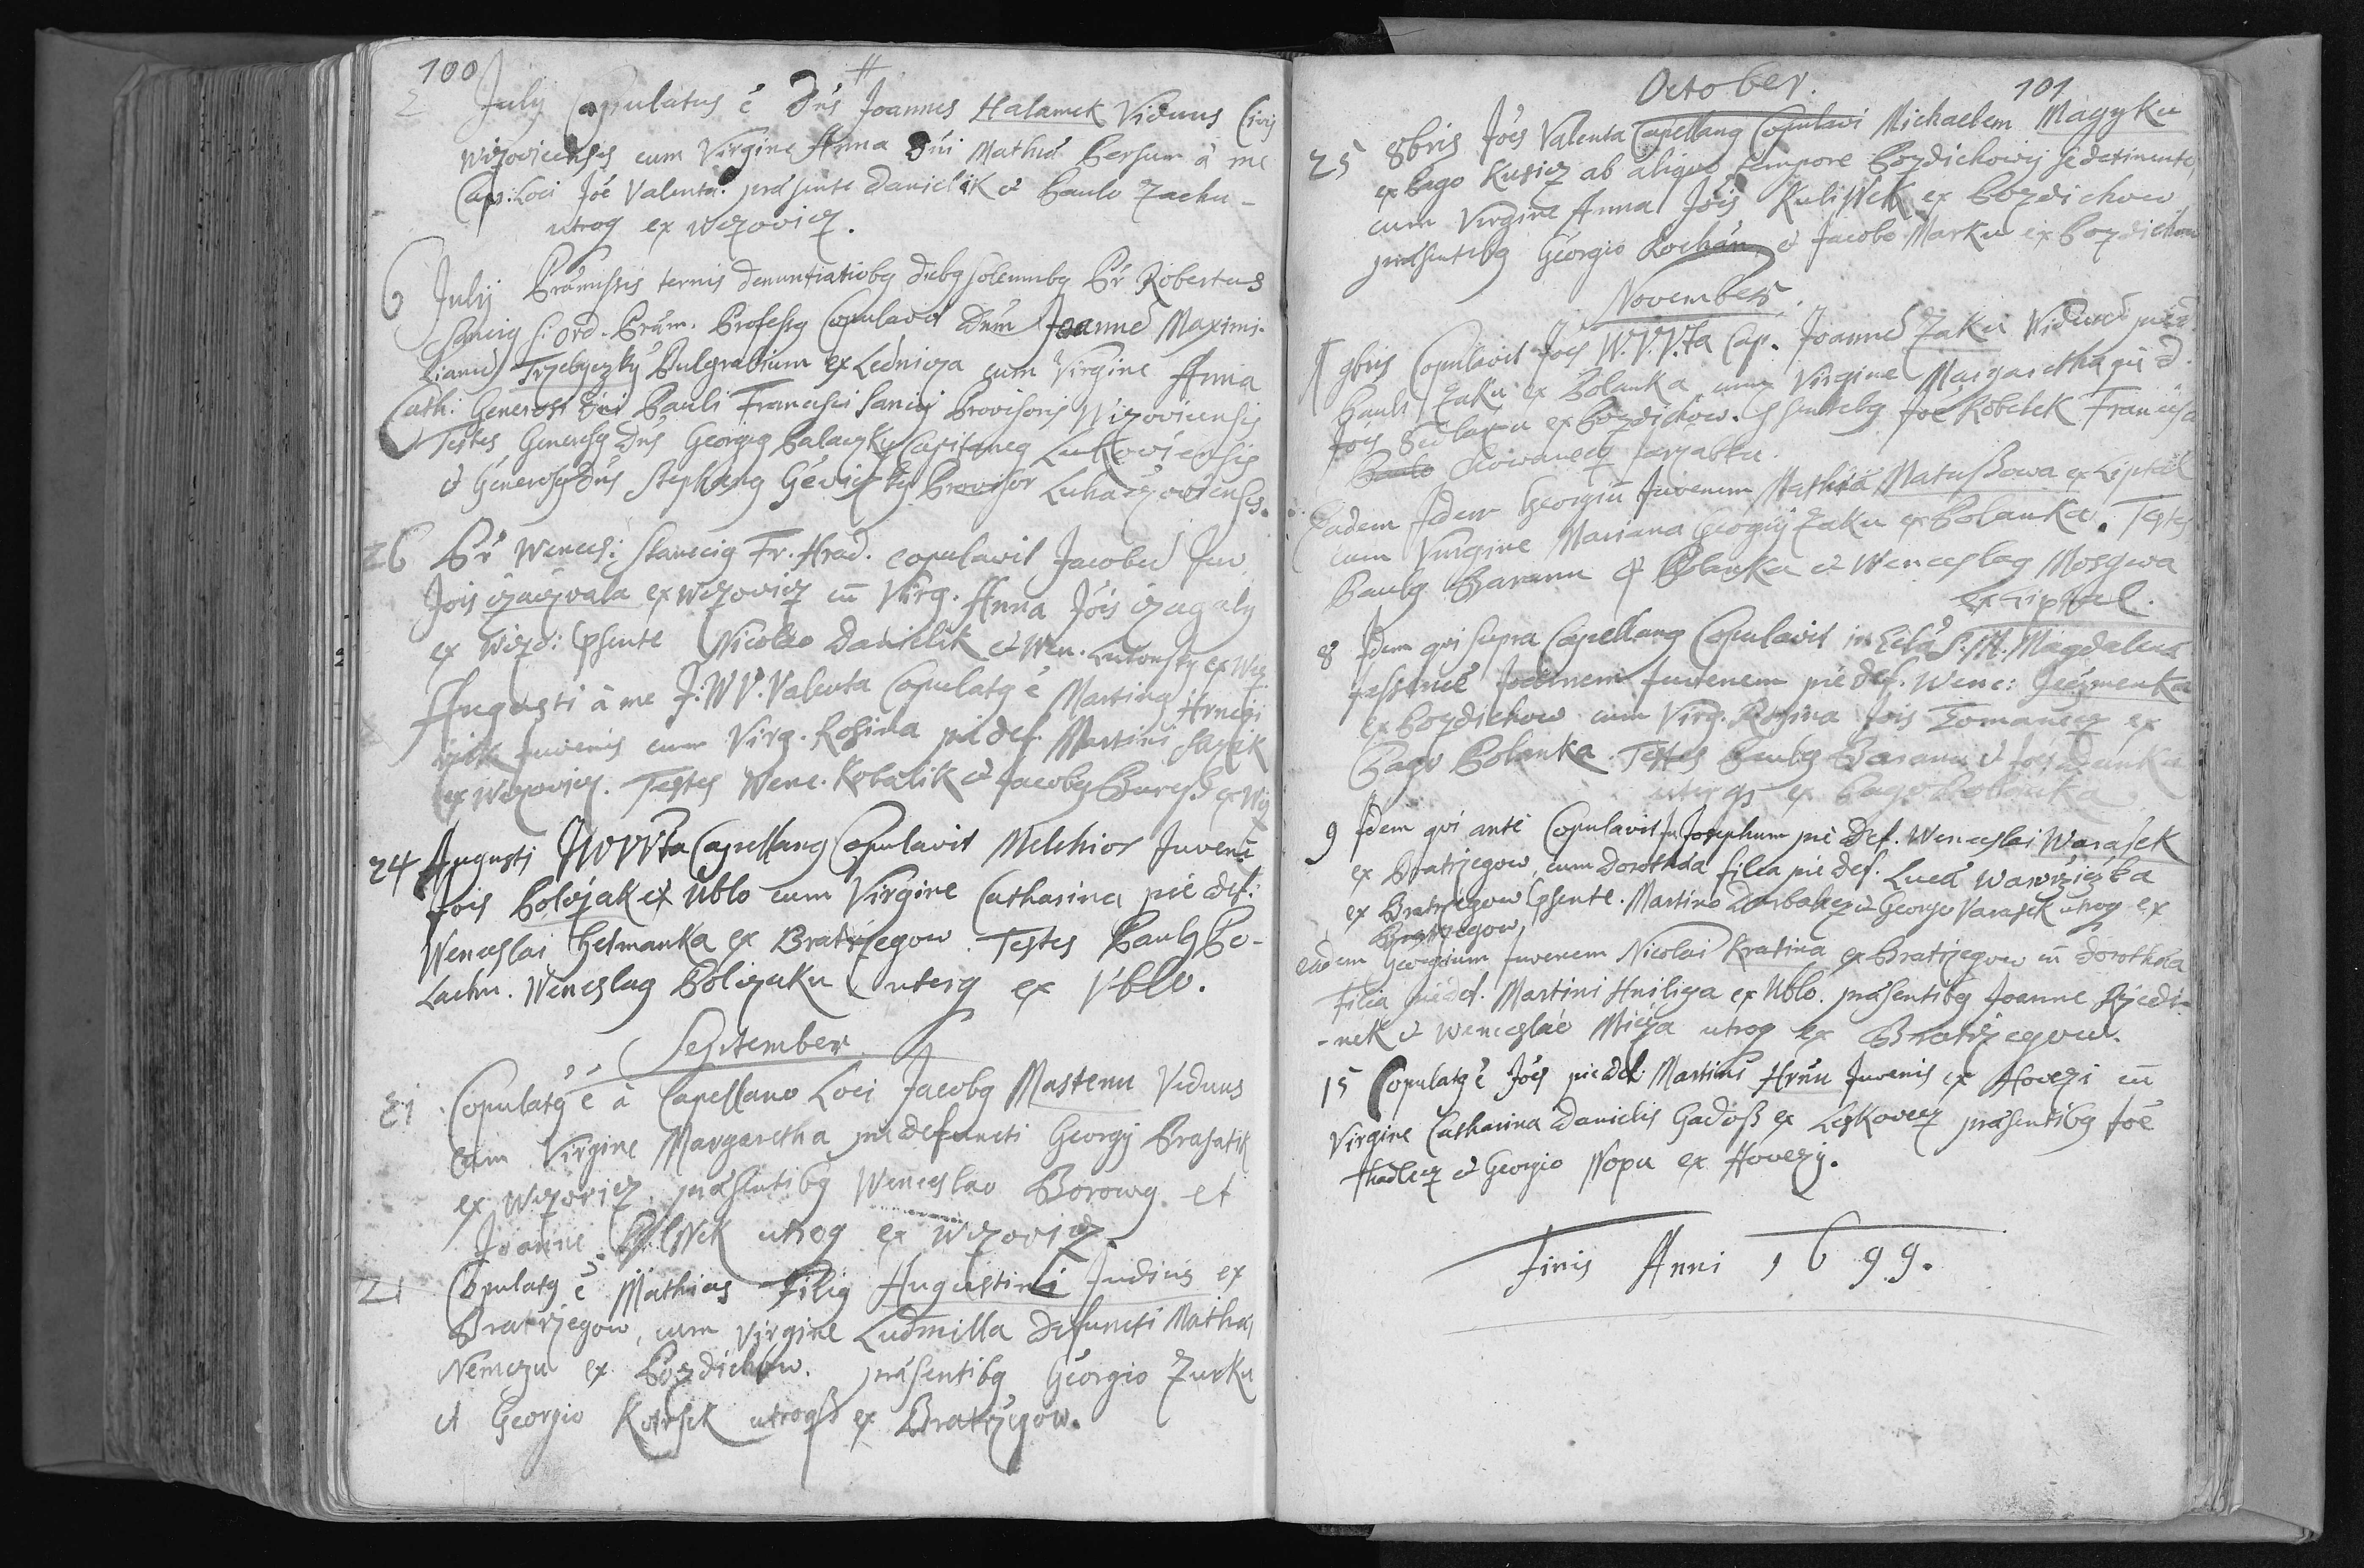 100
2 July Copulatus é Dńs Joannes Halamek Viduus Civis
Wizovicensis cum Virgine Anna Dńi Mathiæ Bersum à me
Cap: Loci Jóé Valenta. præsente Danielik et Paulo Zachu-
utroq ex Wizovicz.
6 July Præmissis ternis denuntiatiobg diebg solemnibg Pr Robertus
Sancig S: Ord. Præm. Professg Copulavit Dńm Joanné Maximi-
lianú Trzebyczky Bulgrabium ex Lednicza cum Virgine Anna
Cath: Generosi Dńi Pauli Francisci Sancij Provisoris Wizovicensis
Testes Generosg Dńs Georgig Balaczky Capitaneg Lukoviensis
et Generosg Dńs Stephang Geviczky Provisor Lukaczoviensis.
26 Pr Wences: Stanicig Fr. Hrad. copulavit Jacobú Juv.
Jóis Czaczvala ex Wizovicz cū Virg. Anna Jóis Czagaly
ex Wizo: Psente Nicolao Danielik et Wen. Lutonsky ex Wiz
Augusti à me J: W V. Valenta Copulatg é Marting Hrnczi
rzik Juvenis cum Virg. Rosina pié def. Martini Sazik
ex Wizovicz. Testes Wenc. Kobalik et Jacobg Buress ex Wiz
24 Augusti JWVVta Capellang Copulavit Melchior Juvené
Jóis Polozak ex Ublo cum Virgine Catharina pie def:
Wenceslai Hetmanka ex Bratrzegow. Testes Paulg Po-
Lachu. Wenceslag Policzaku uterq ex Vblo.
September
21 Copulatg é à Capellano Loci Jacobg Mastenu Viduus
cum Virgine Margaretha pié defuncti Georgij Brasatik
ex Wizovicz præsentibg Wenceslao Borowy et
Joanne utroq ex Wizovicz
21 Copulatg é Mathias Filig Augustini Judius ex
Bratrzegow, cum Virgine Ludmilla Defuncti Mathæi
Nemczu ex Pozdiechow. præsentibg Georgio Zurku
et Georgio Kotrsek utroq ex Bratrzegow.
October. 101
25 8bris Jóés Valenta Capellang Copulavi Michaelem Magyku
ex Pago Kusicz ab aliquo tempore Pozdichowij se detinente,
cum Virgine Anna Jóis Kulissek ex Pozdichow
præsentibg Georgio Pochán et Jacobo Marku ex Pozdichow
November.
9bris Copulavit Jóés W.V.V.ta Cap. Joanné Zaku Viduú pié d
Pauli Zaku ex Polanka cum Virgine Margaretha pié d.
Jóis Sedlarzu ex Pozdichow. Psentibg Jóé Kobelek Francisco
Paulo Chowanecz Sarzabku.
Eadem Idem Georgiū Juvenem Mathiæ Matussowa ex Liptal
cum Virgine Mariana Georgij Zaku ex Polanka. Testes
Paulg Baranu ex Polanka et Wenceslag Mosgwa
ex Liptal.
8 Idem qvi supra Capellang Copulavit in Ecla S. M. Magdalenæ
Joannem Juvenem pié def. Wenc: Jeczmenka
ex Pozdichow cum Virg. Rosina Jóis Tomanecz ex
Pago Polanka. Testes Paulg Baranu et Jóés Danka
uterqs ex Pago Polanka
9 Idem qvi anté Copulavit Ju Josephum pié def. Wenceslai Warasek
ex Bratrzegow, cum Dorothea filia pié def. Lucæ Wawrzicżka
ex Bratrzegow Psente. Martino et Georgio Varasek utroq ex
Bratrzegow,
eadem Georgium Juvenem Nicolai Kratina ex Bratrzegow cū Dorothea
Filia pié def. Martini Hniliza ex Ublo. præsentibg Joanne Rzedi-
-nek et Wenceslao Micza utroq ex Bratrzegow.
15 Copulatg é Jóés pié def: Martini Hrnu Juvenis ex Howezi cū
Virgine Catharina Danielis Gadoss ex Leskovecz præsentibg Jóé
Hadlecz et Georgio Nopu ex Hovezy.
Finis Anni 1699.